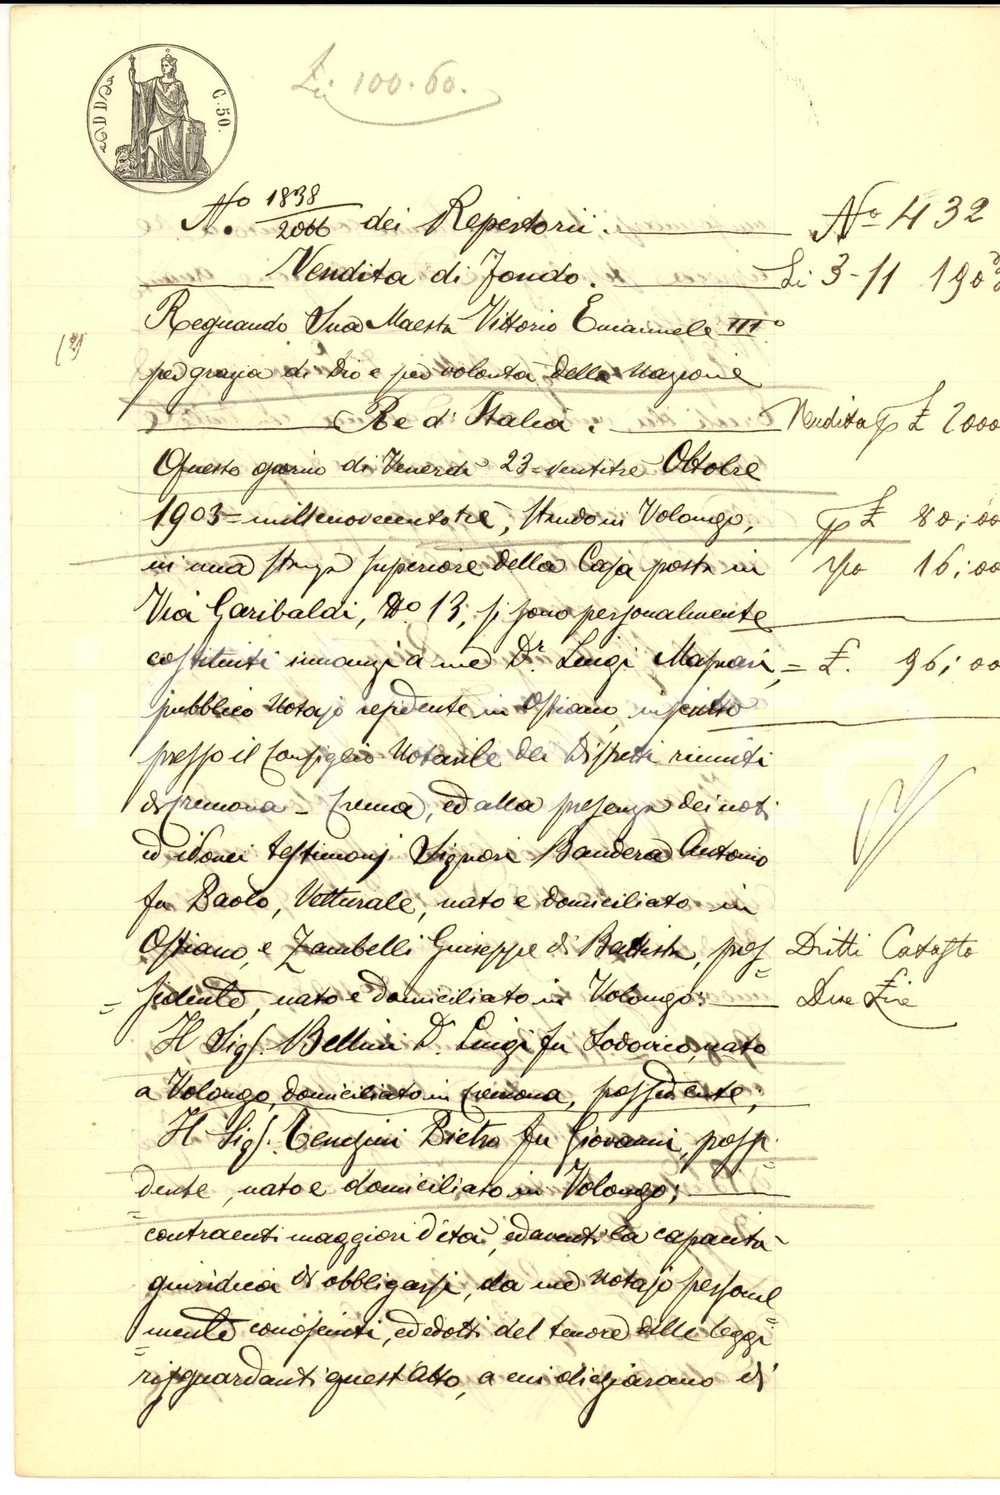 C. 50.
£i 100.60.
N.º 1838/2066 dei Repertorii.
Nº 432
Vendita di Fondo.
Li 3-11 190
Regnando Sua Maestà Vittorio Emanuele IIIº
per grazia di Dio e per volontà della Nazione
Re d'Italia.
Vendita p £ 2000
Questo giorno di Venerdì 23 = ventitrè Ottobre
1903 = millenovecentotrè, stando in Volongo,
p £ 80,00
in una stanza superiore della Casa posta in
16,00
Via Garibaldi, Nº 13, si sono personalmente
costituiti innanzi a me Dr. Luigi
= £. 96,00
pubblico Notajo residente in Ostiano, inscritto
presso il Consiglio Notarile dei Distretti riuniti
di Cremona - Crema, ed alla presenza dei noti
ed idonei testimonj Signori Bandera Antonio
fu Paolo, Vetturale, nato e domiciliato in
Ostiano, e Zambelli Giuseppe di Battista, pos=
Dritti Catasto
=sedente, nato e domiciliato in Volongo:
Due Lire
Il Sigr. Bellini Dr. Luigi fu Lodovico, nato
a Volongo, domiciliato in Cremona, possidente;
Il Sigr. Tenchini Pietro fu Giovanni, possi=
=dente, nato e domiciliato in Volongo;
contraenti maggiori d'età, ed aventi la capacità
giuridica di obbligarsi, da me Notajo personal=
=mente conosciuti, ed edotti del tenore delle leggi
risguardanti quest'Atto, a cui dichiarano di